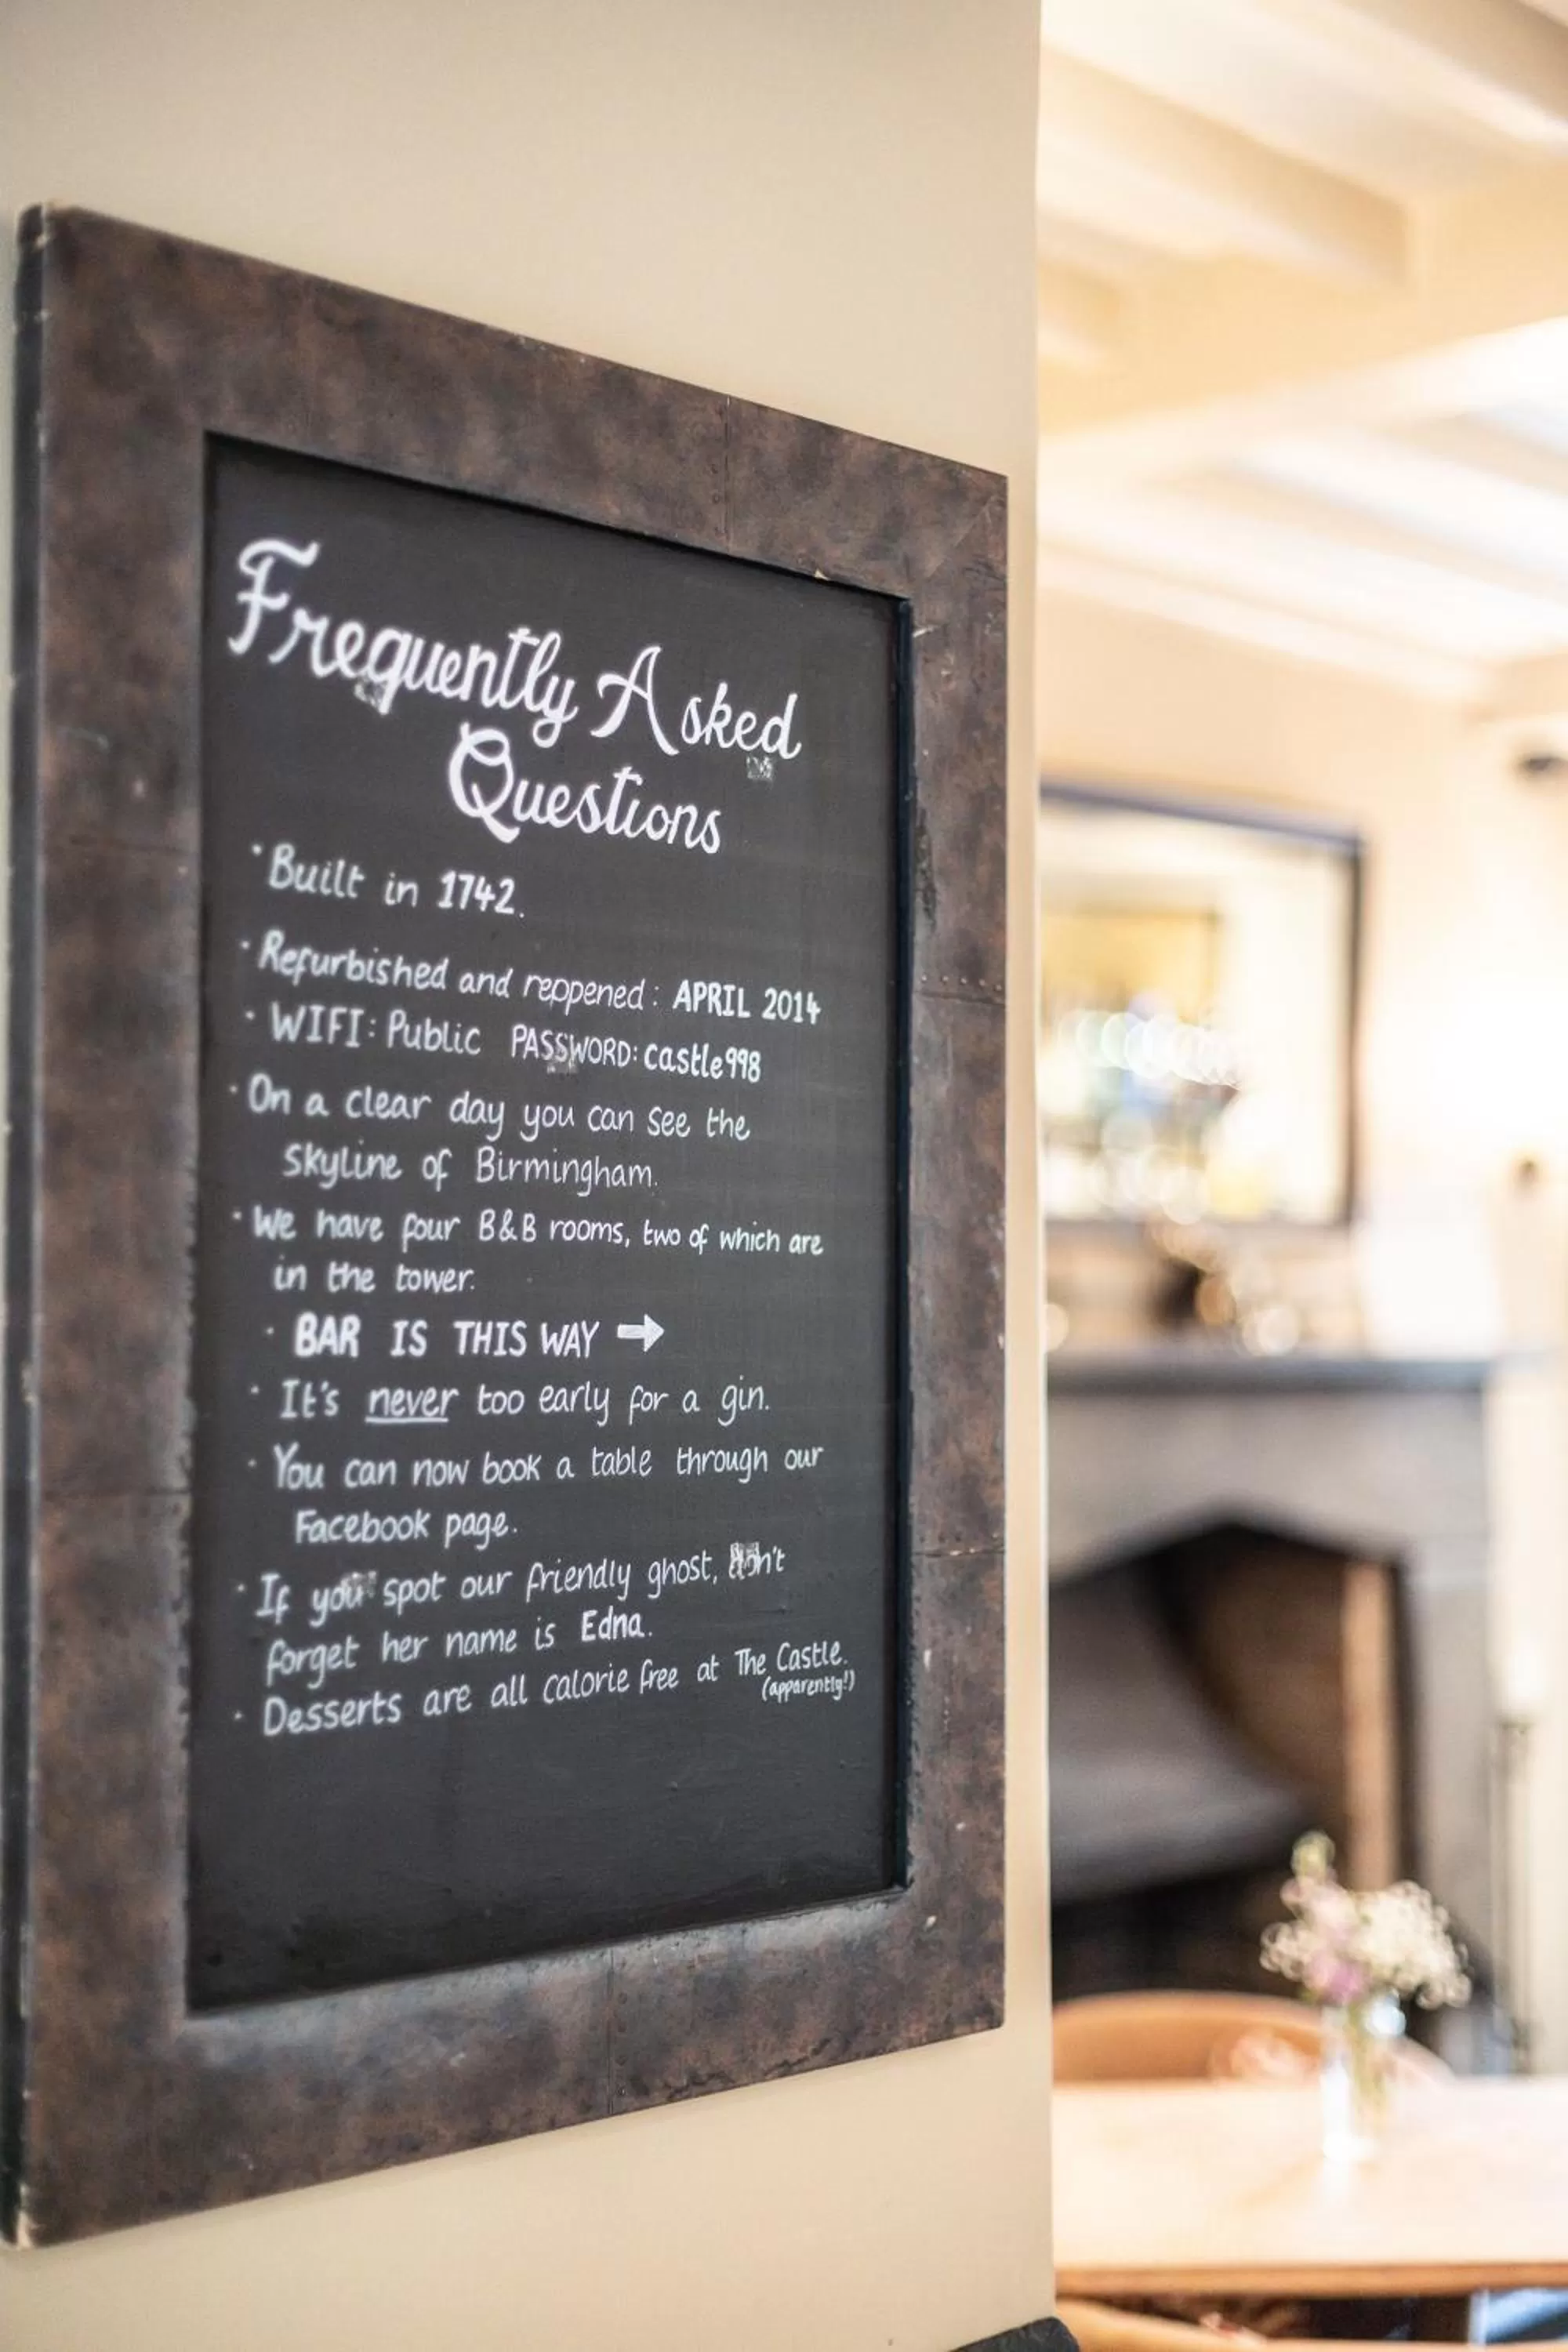 Frequently Asked
Questions
· Built in 1742.
· Refurbished and reopened: APRIL 2014
· WIFI: Public PASSWORD: castle998
· On a clear day you can see the
skyline of Birmingham.
· We have four B&B rooms, two of which are
in the tower.
· BAR IS THIS WAY →
· It's never too early for a gin.
· You can now book a table through our
Facebook page.
· If you spot our friendly ghost, don't
forget her name is Edna.
· Desserts are all calorie free at The Castle.
(apparently!)